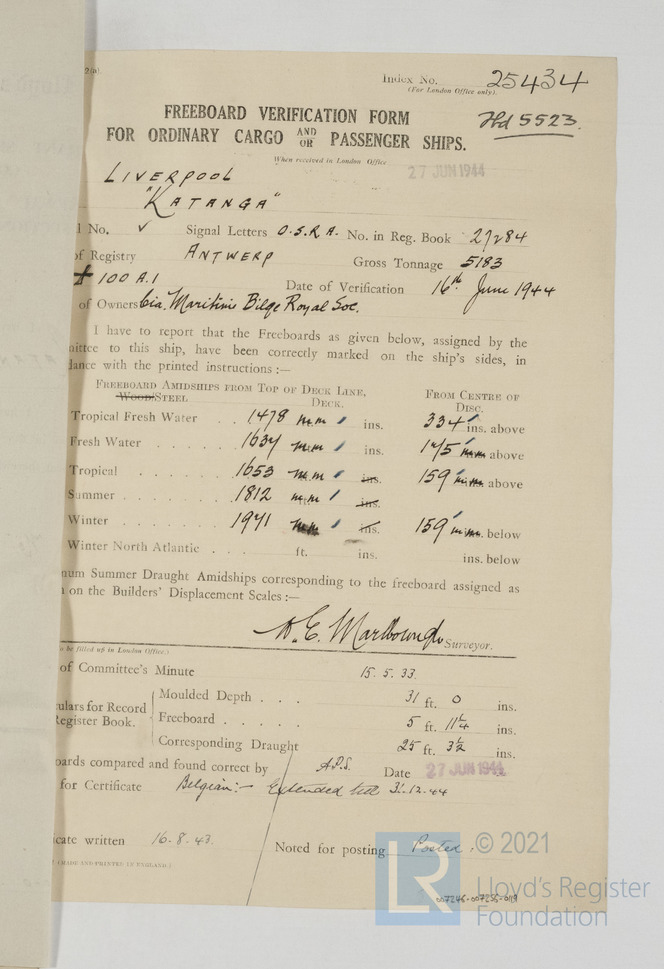 2(a).
Index No. 25434
(For London Office only).
FREEBOARD VERIFICATION FORM
FOR ORDINARY CARGO AND OR PASSENGER SHIPS.
Fbd 5523.
When received in London Office 27 JUN 1944
LIVERPOOL
"KATANGA"
l No. ✓ Signal Letters O.S.R.A. No. in Reg. Book 27284
of Registry ANTWERP Gross Tonnage 5183
+ 100 A.1 Date of Verification 16th June 1944
of Owners Cia. Maritime Bilge Royal Soc.
I have to report that the Freeboards as given below, assigned by the
mittee to this ship, have been correctly marked on the ship's sides, in
dance with the printed instructions :—
FREEBOARD AMIDSHIPS FROM TOP OF DECK LINE, FROM CENTRE OF
WOOD/STEEL DECK. DISC.
Tropical Fresh Water . . 1478 mm ins. 334 ins. above
Fresh Water . . . . . . 1637 mm ins. 175 mm above
Tropical . . . . . . . 1653 mm ins. 159 mm. above
Summer . . . . . . . . 1812 mm ins.
Winter . . . . . . . 1971 mm ins. 159 mm. below
Winter North Atlantic . . . ft. ins. ins. below
num Summer Draught Amidships corresponding to the freeboard assigned as
n on the Builders' Displacement Scales :—
A.E. Marlborough Surveyor.
to be filled up in London Office.)
of Committee's Minute 15.5.33.
Moulded Depth . . . 31 ft. 0 ins.
ulars for Record
Register Book.
Freeboard . . . . . 5 ft. 11¼ ins.
Corresponding Draught 25 ft. 3½ ins.
oards compared and found correct by A.P.S. Date 27 JUN 1944
for Certificate Belgian:— Extended till 31-12-44
cate written 16.8.43. Noted for posting Posted.
MADE AND PRINTED IN ENGLAND.)
LR
© 2021
Lloyd's Register
Foundation
007246-007255-0119